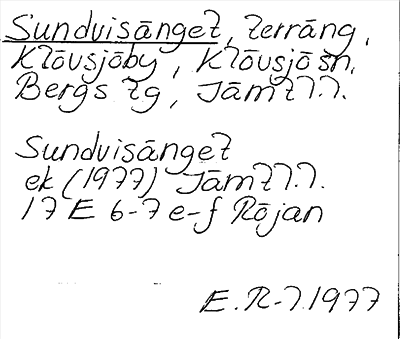 Sundvisänget, terräng,
Klövsjöby, Klövsjö sn,
Bergs tg, Jämtl.
Sundvisänget
ek (1977) Jämtl.
17 E 6-7 e-f Röjan
E.R-l.1977